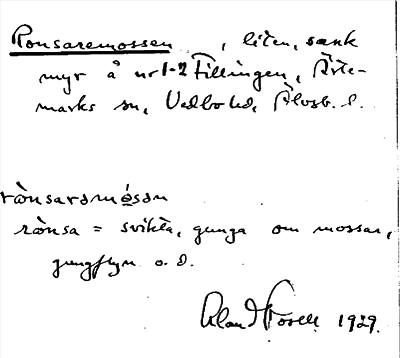 Ronsaremossen, liten, sank
myr å nr 1-2 Fillingen, Ärte-
marks sn, Vedbo hd, Älvsb. l.
rònsarəmósən
rònsa = svikta, gunga om mossar,
gungflyn o. d.
1929.